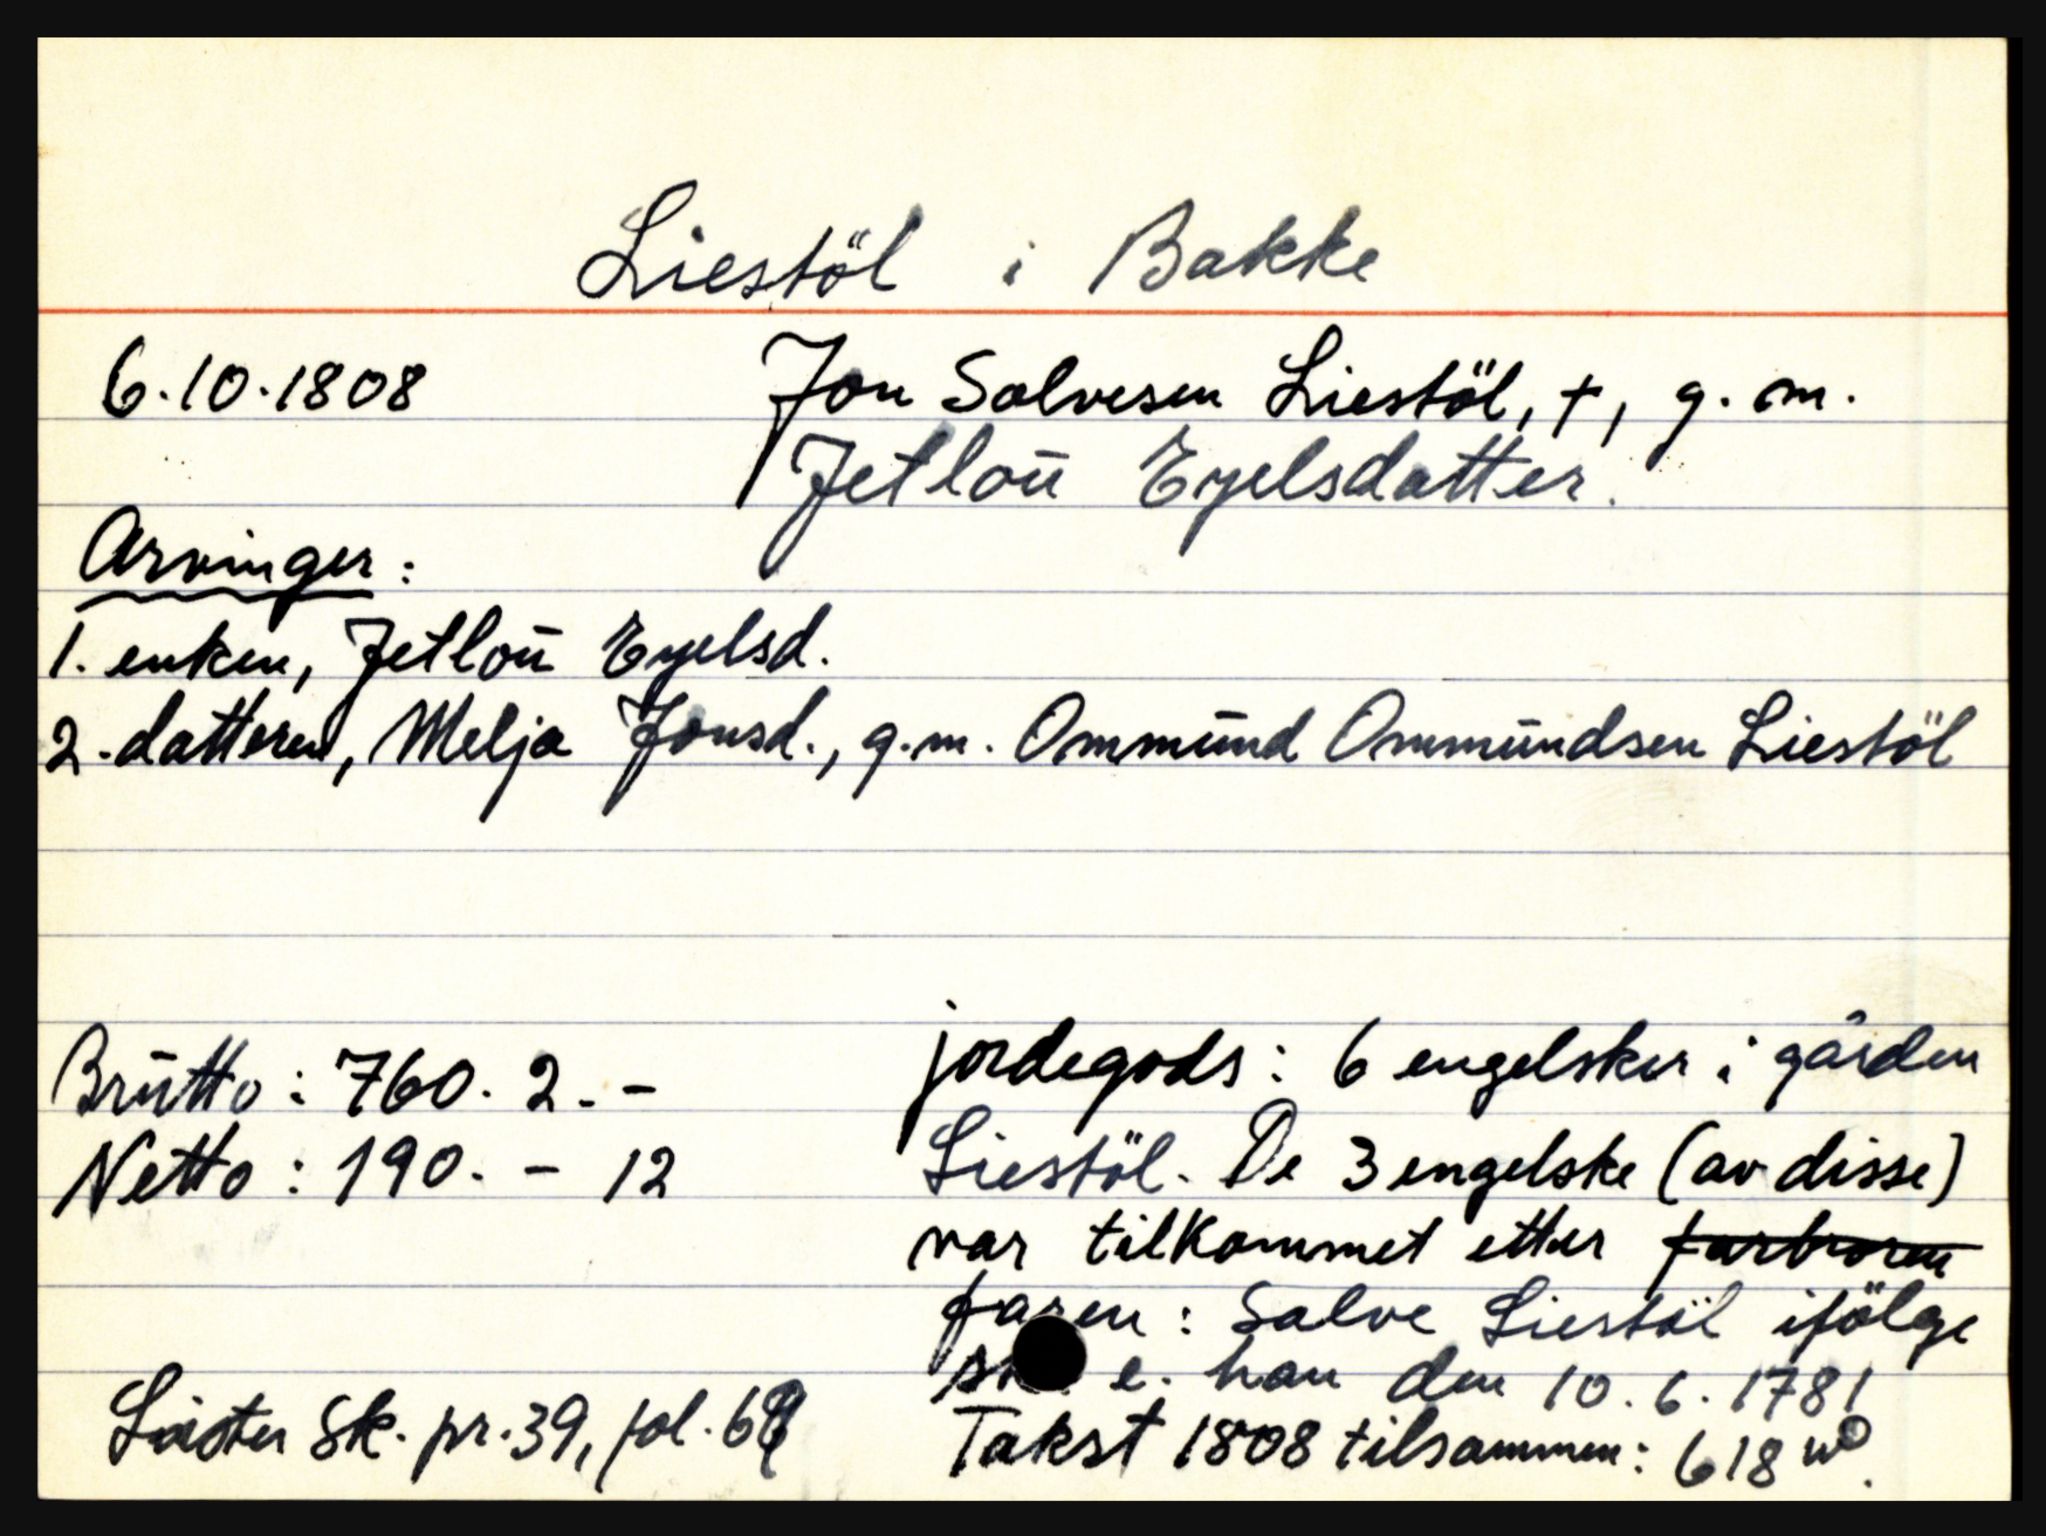 Liestöl i Bakke
6.10.1808 Jon Salvesen Liestöl, †, g. m.
Jetloū Eyelsdatter.
Arvinger:
1. enken, Jetloū Eyelsd.
2. datteren, Melja Jonsd., g.m. Ommūnd Ommūndsen Liestöl
Brūtto: 760. 2. -
Netto: 190. - 12
jordegods: 6 engelsker i gården
Liestöl. De 3 engelske (av disse)
var tilkommet etter farbroren
faren: Salve Liestöl ifölge
sk. e. han den 10.6.1781
Takst 1808 tilsammen: 618
Lister Sk. pr. 39, fol.